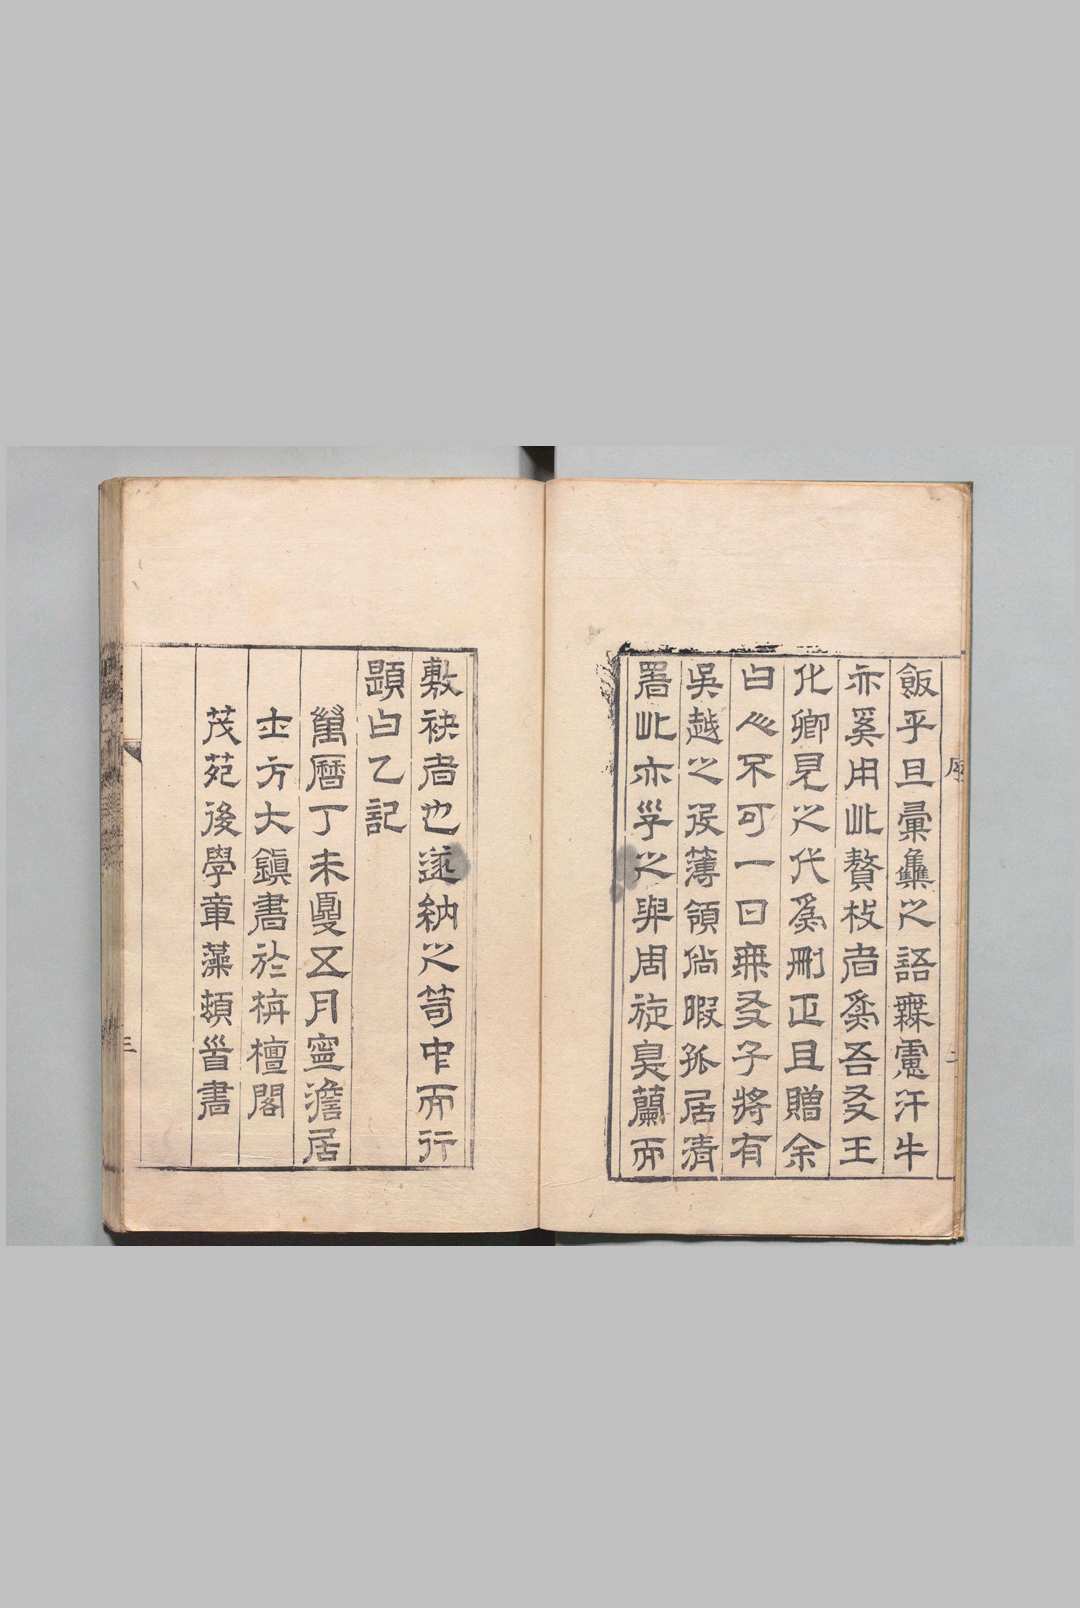 序
二
飯乎且彙雧之語無慮汗牛
亦奚用此贅枝者為吾友王
化卿見之代為刪正且贈余
曰必不可一日無友子將有
吳越之役簿領倘暇孤居清
署此亦孚之與周旋臭蘭而
敷袂者也遂納之笥中而行
題曰乙記
萬曆丁未夏五月寧澹居
士方大鎮書於栴檀閣
茂苑後學章藻頓首書
三